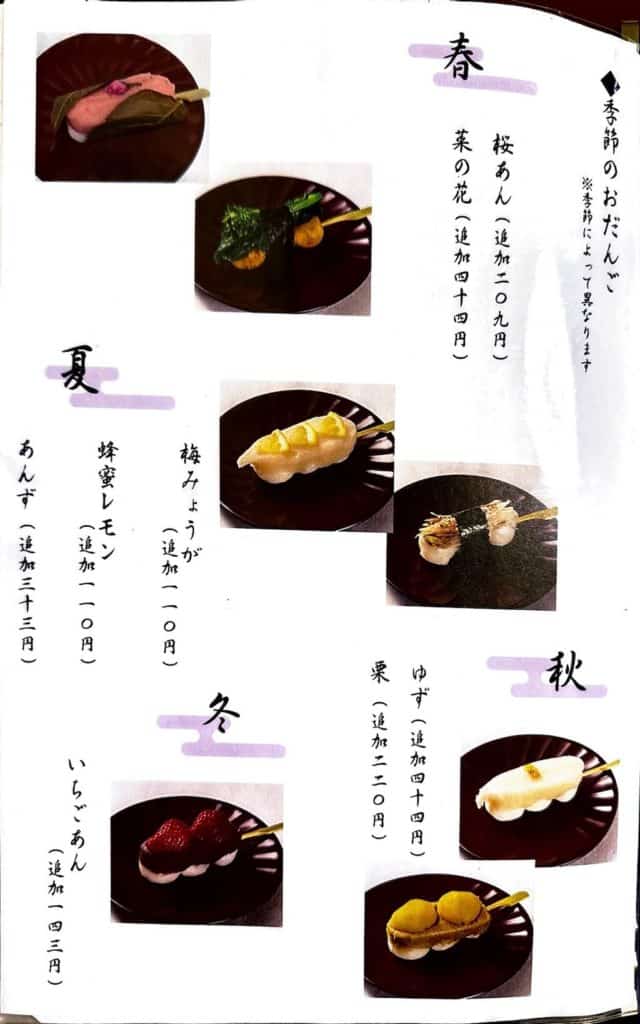 ◆季節のおだんご
※季節によって異なります
春
桜あん(追加二〇九円)
菜の花(追加四十四円)
夏
梅みょうが
(追加一一〇円)
蜂蜜レモン
(追加一一〇円)
あんず(追加三十三円)
秋
ゆず(追加四十四円)
栗(追加二二〇円)
冬
いちごあん
(追加一四三円)